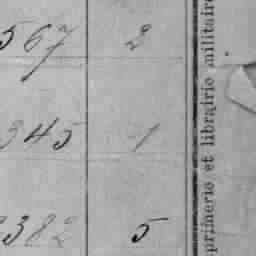 567 2
345 1
382 5
primerie et librairie militaire